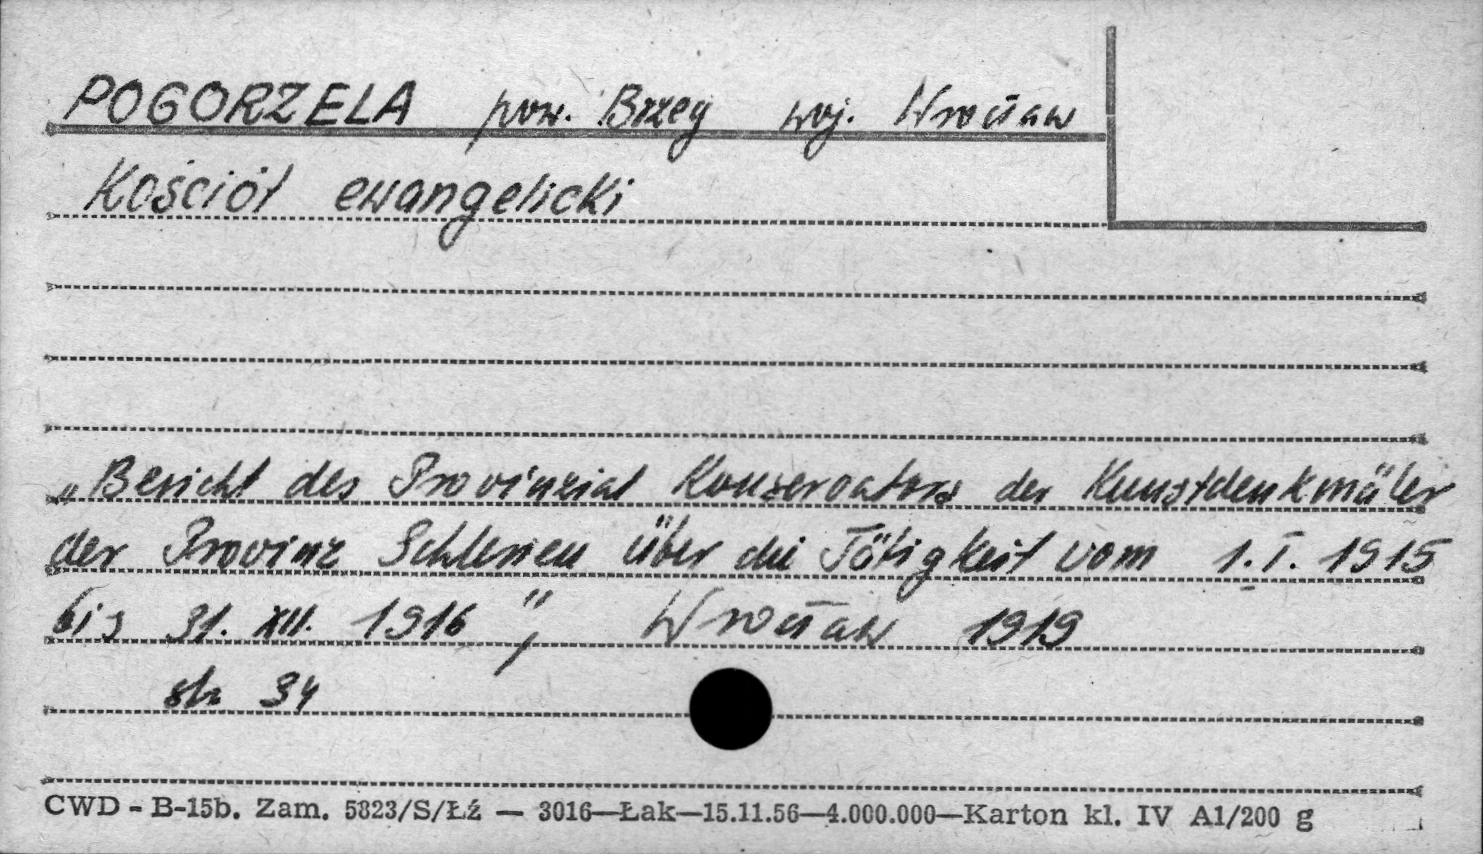 POGORZELA pow. Brzeg woj. Wrocław
Kościół ewangelicki
„Bericht des Provinzial Konservators der Kunstdenkmäler
der Provinz Schlesien über die Tätigkeit vom 1.I. 1915
bis 31. XII. 1916", Wrocław 1919
str 34
CWD - B-15b. Zam. 5823/S/Łź — 3016—Łak—15.11.56—4.000.000—Karton kl. IV A1/200 g